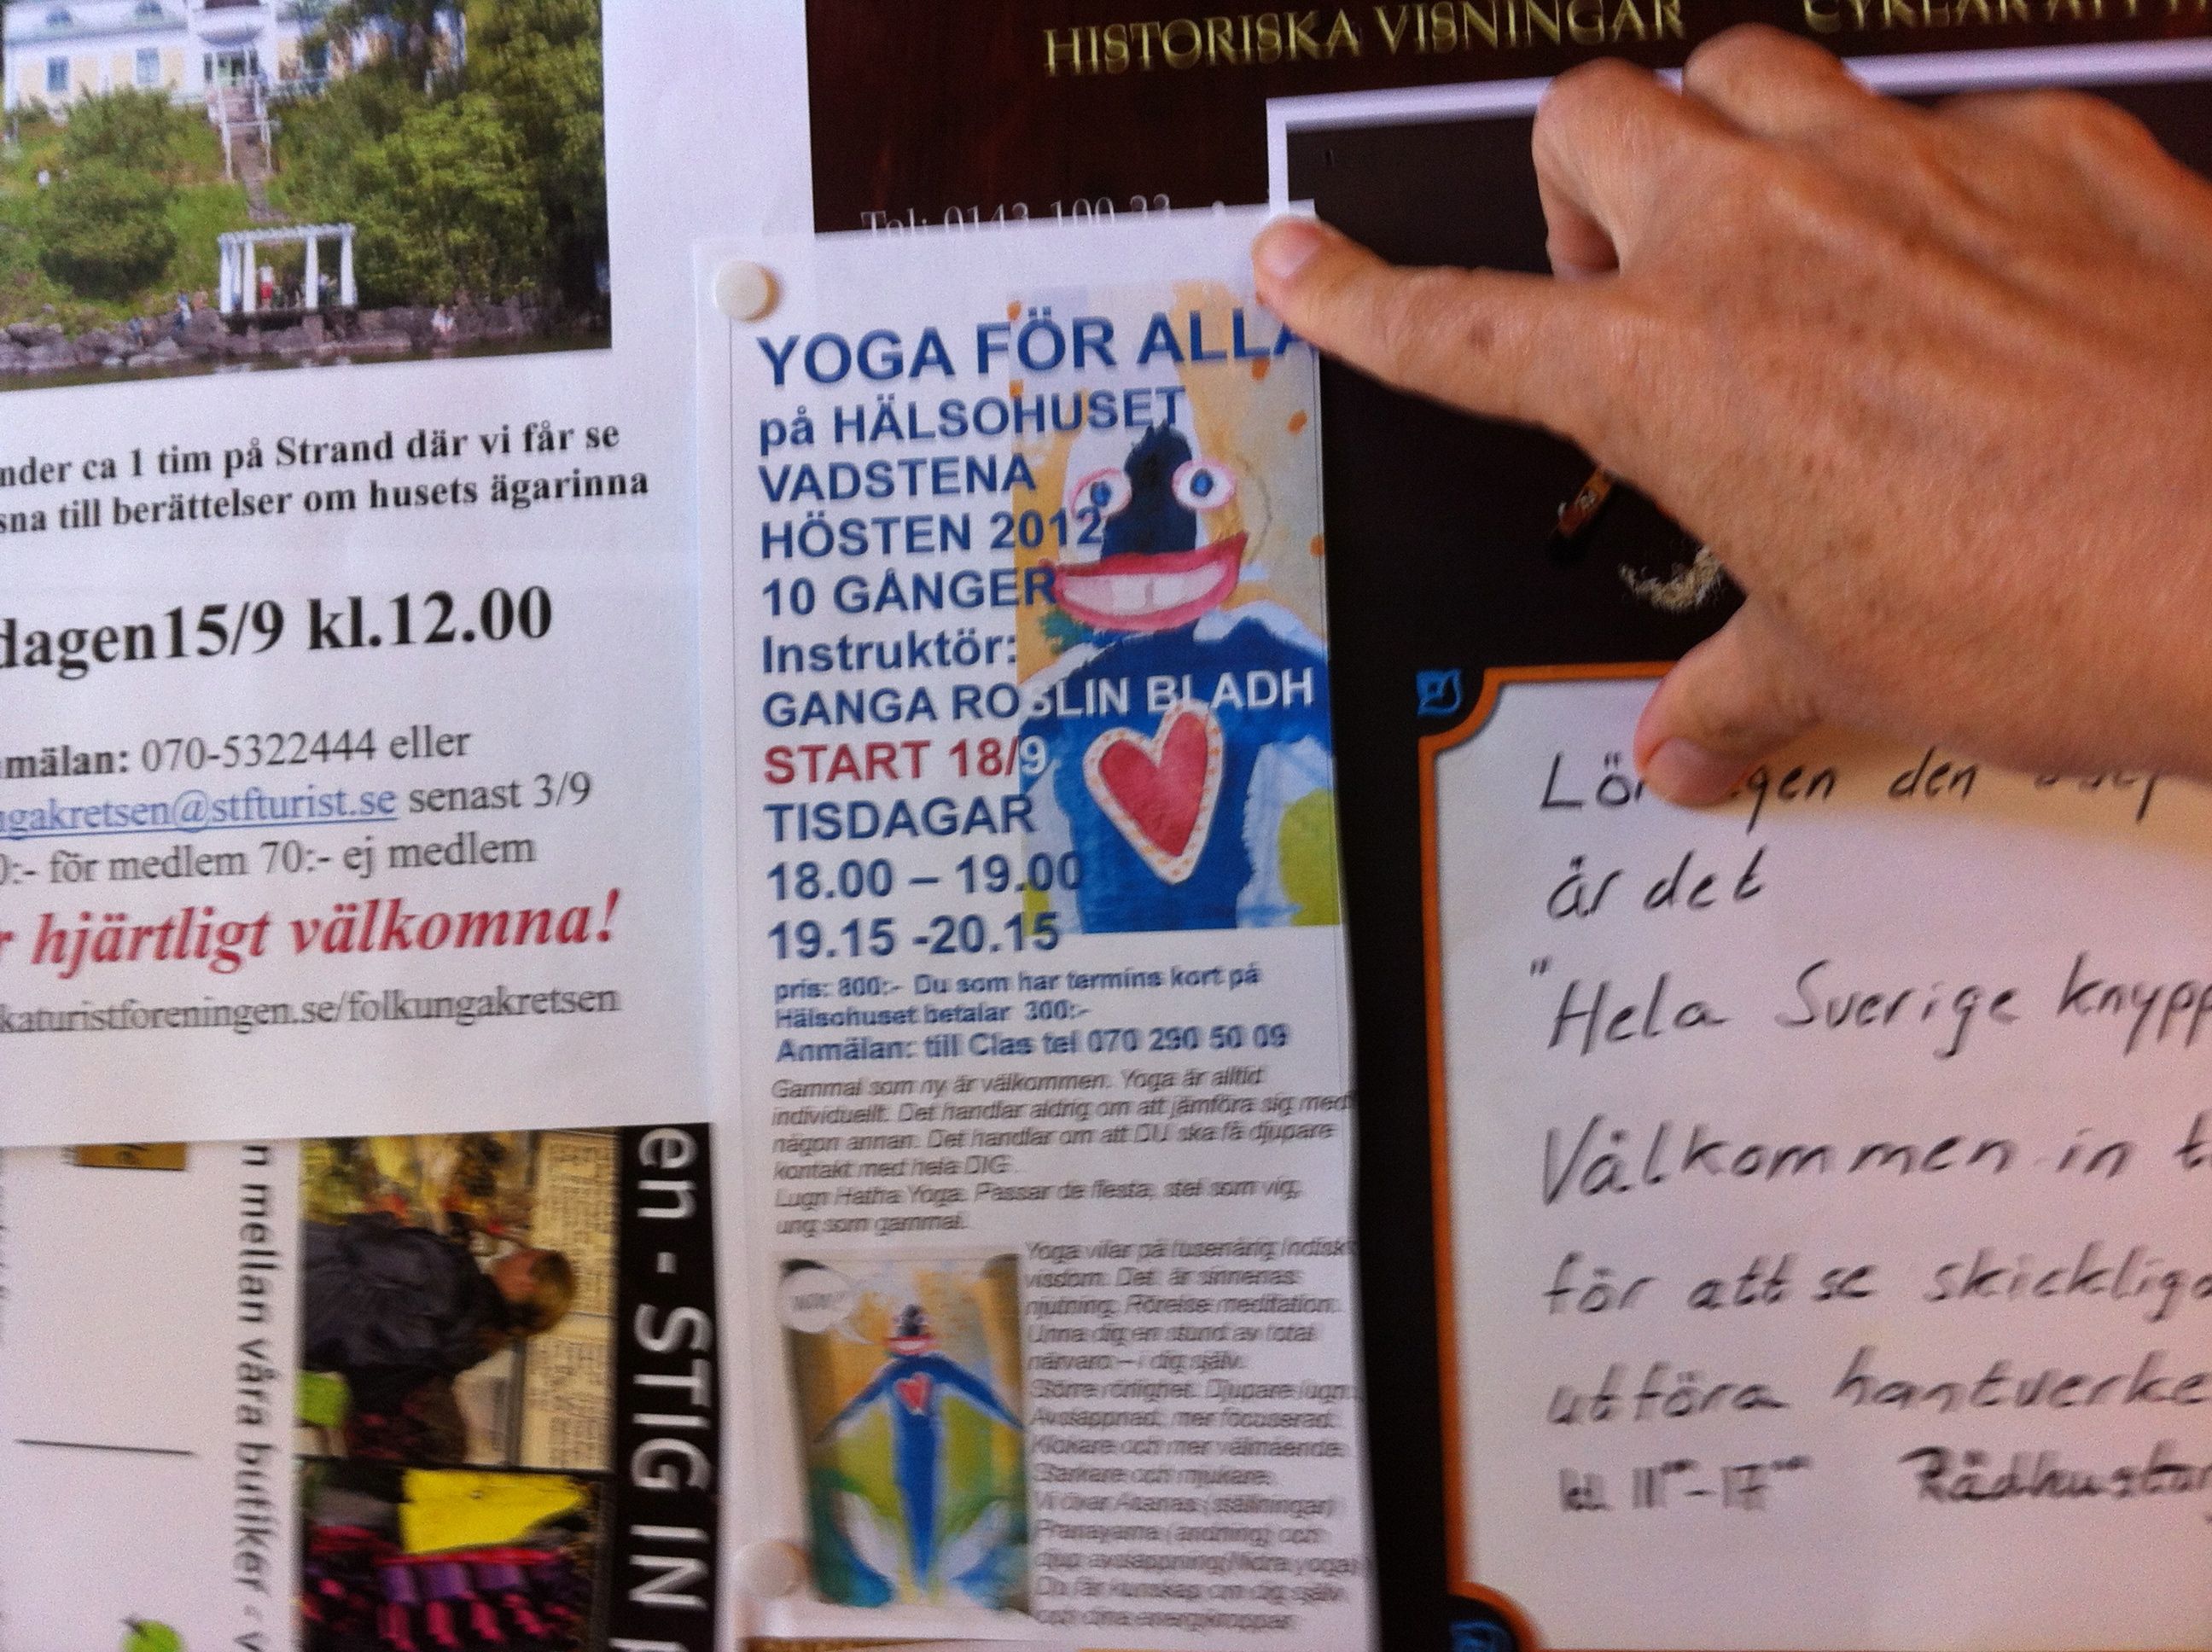 HISTORISKA VISNINGAR
Tel: 0143-100 33
nder ca 1 tim på Strand där vi får se
sna till berättelser om husets ägarinna
dagen15/9 kl.12.00
mälan: 070-5322444 eller
gakretsen@stfturist.se senast 3/9
0:- för medlem 70:- ej medlem
r hjärtligt välkomna!
katuristforeningen.se/folkungakretsen
n mellan våra butiker
en - STIG IN
YOGA FÖR ALLA
på HÄLSOHUSET
VADSTENA
HÖSTEN 2012
10 GÅNGER
Instruktör:
GANGA ROSLIN BLADH
START 18/9
TISDAGAR
18.00 – 19.00
19.15 -20.15
pris: 800:- Du som har termins kort på
Hälsohuset betalar 300:-
Anmälan: till Clas tel 070 290 50 09
Gammal som ny är välkommen. Yoga är alltid
individuellt. Det handlar aldrig om att jämföra sig med
någon annan. Det handlar om att DU ska få djupare
kontakt med hela DIG.
Lugn Hatha Yoga. Passar de flesta, stel som vig,
ung som gammal.
Yoga vilar på tusenårig Indisk
visdom. Det är sinnenas
njutning. Rörelse meditation.
Unna dig en stund av total
närvaro – i dig själv.
Större rörlighet. Djupare lugn.
Avslappnad, mer focuserad.
Klokare och mer välmående.
Starkare och mjukare.
Vi övar Asanas (ställningar)
Pranayama (andning) och
djup avslappning(Nidra yoga)
Du får kunskap om dig själv
och dina energikroppar.
den
är det
"Hela Sverige knypp
Välkommen in t
för att se skickliga
utföra hantverke
kl 11⁰⁰-17⁰⁰ Rådhustor